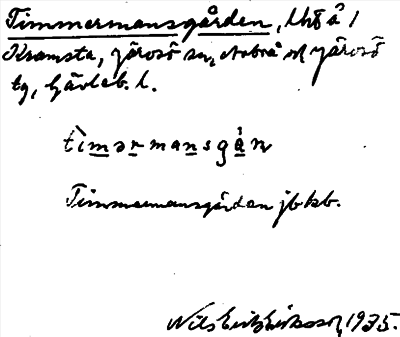 Timmermansgården, lht å 1
Kramsta, Järvsö sn, Norra o V Järvsö
tg, Gävleb. l.
timərmansgån
Timmermansgården jbkb.
Nils Erik Eriksson 1935.